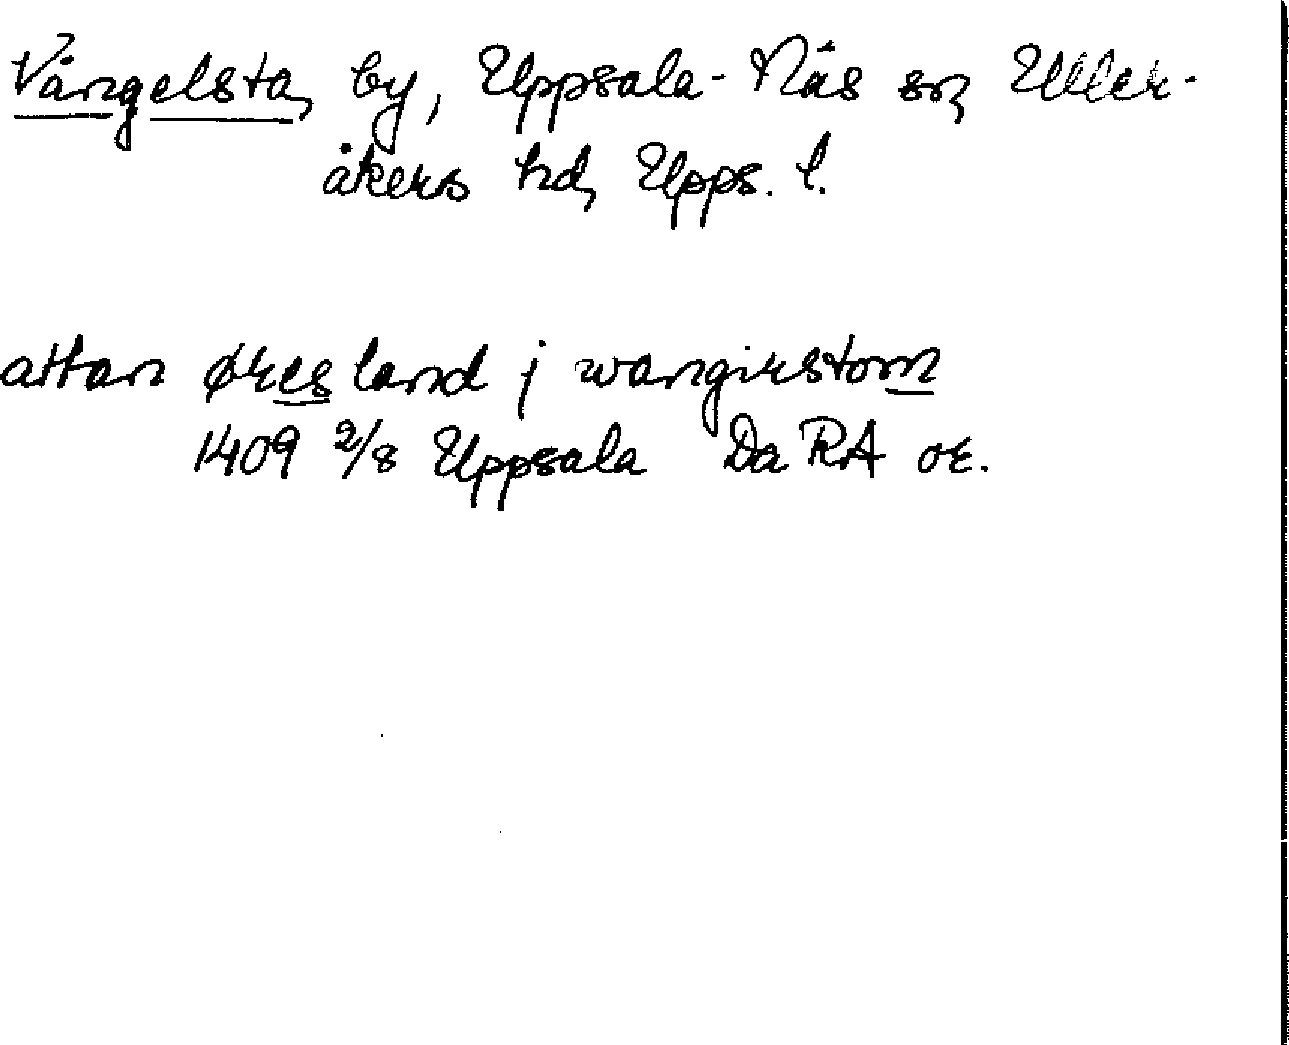 Vängelsta, by, Uppsala-Näs sn, Uller-
åkers hd, Upps. l.
attan øresland j wangirstom
1409 2/8 Uppsala Da RA or.